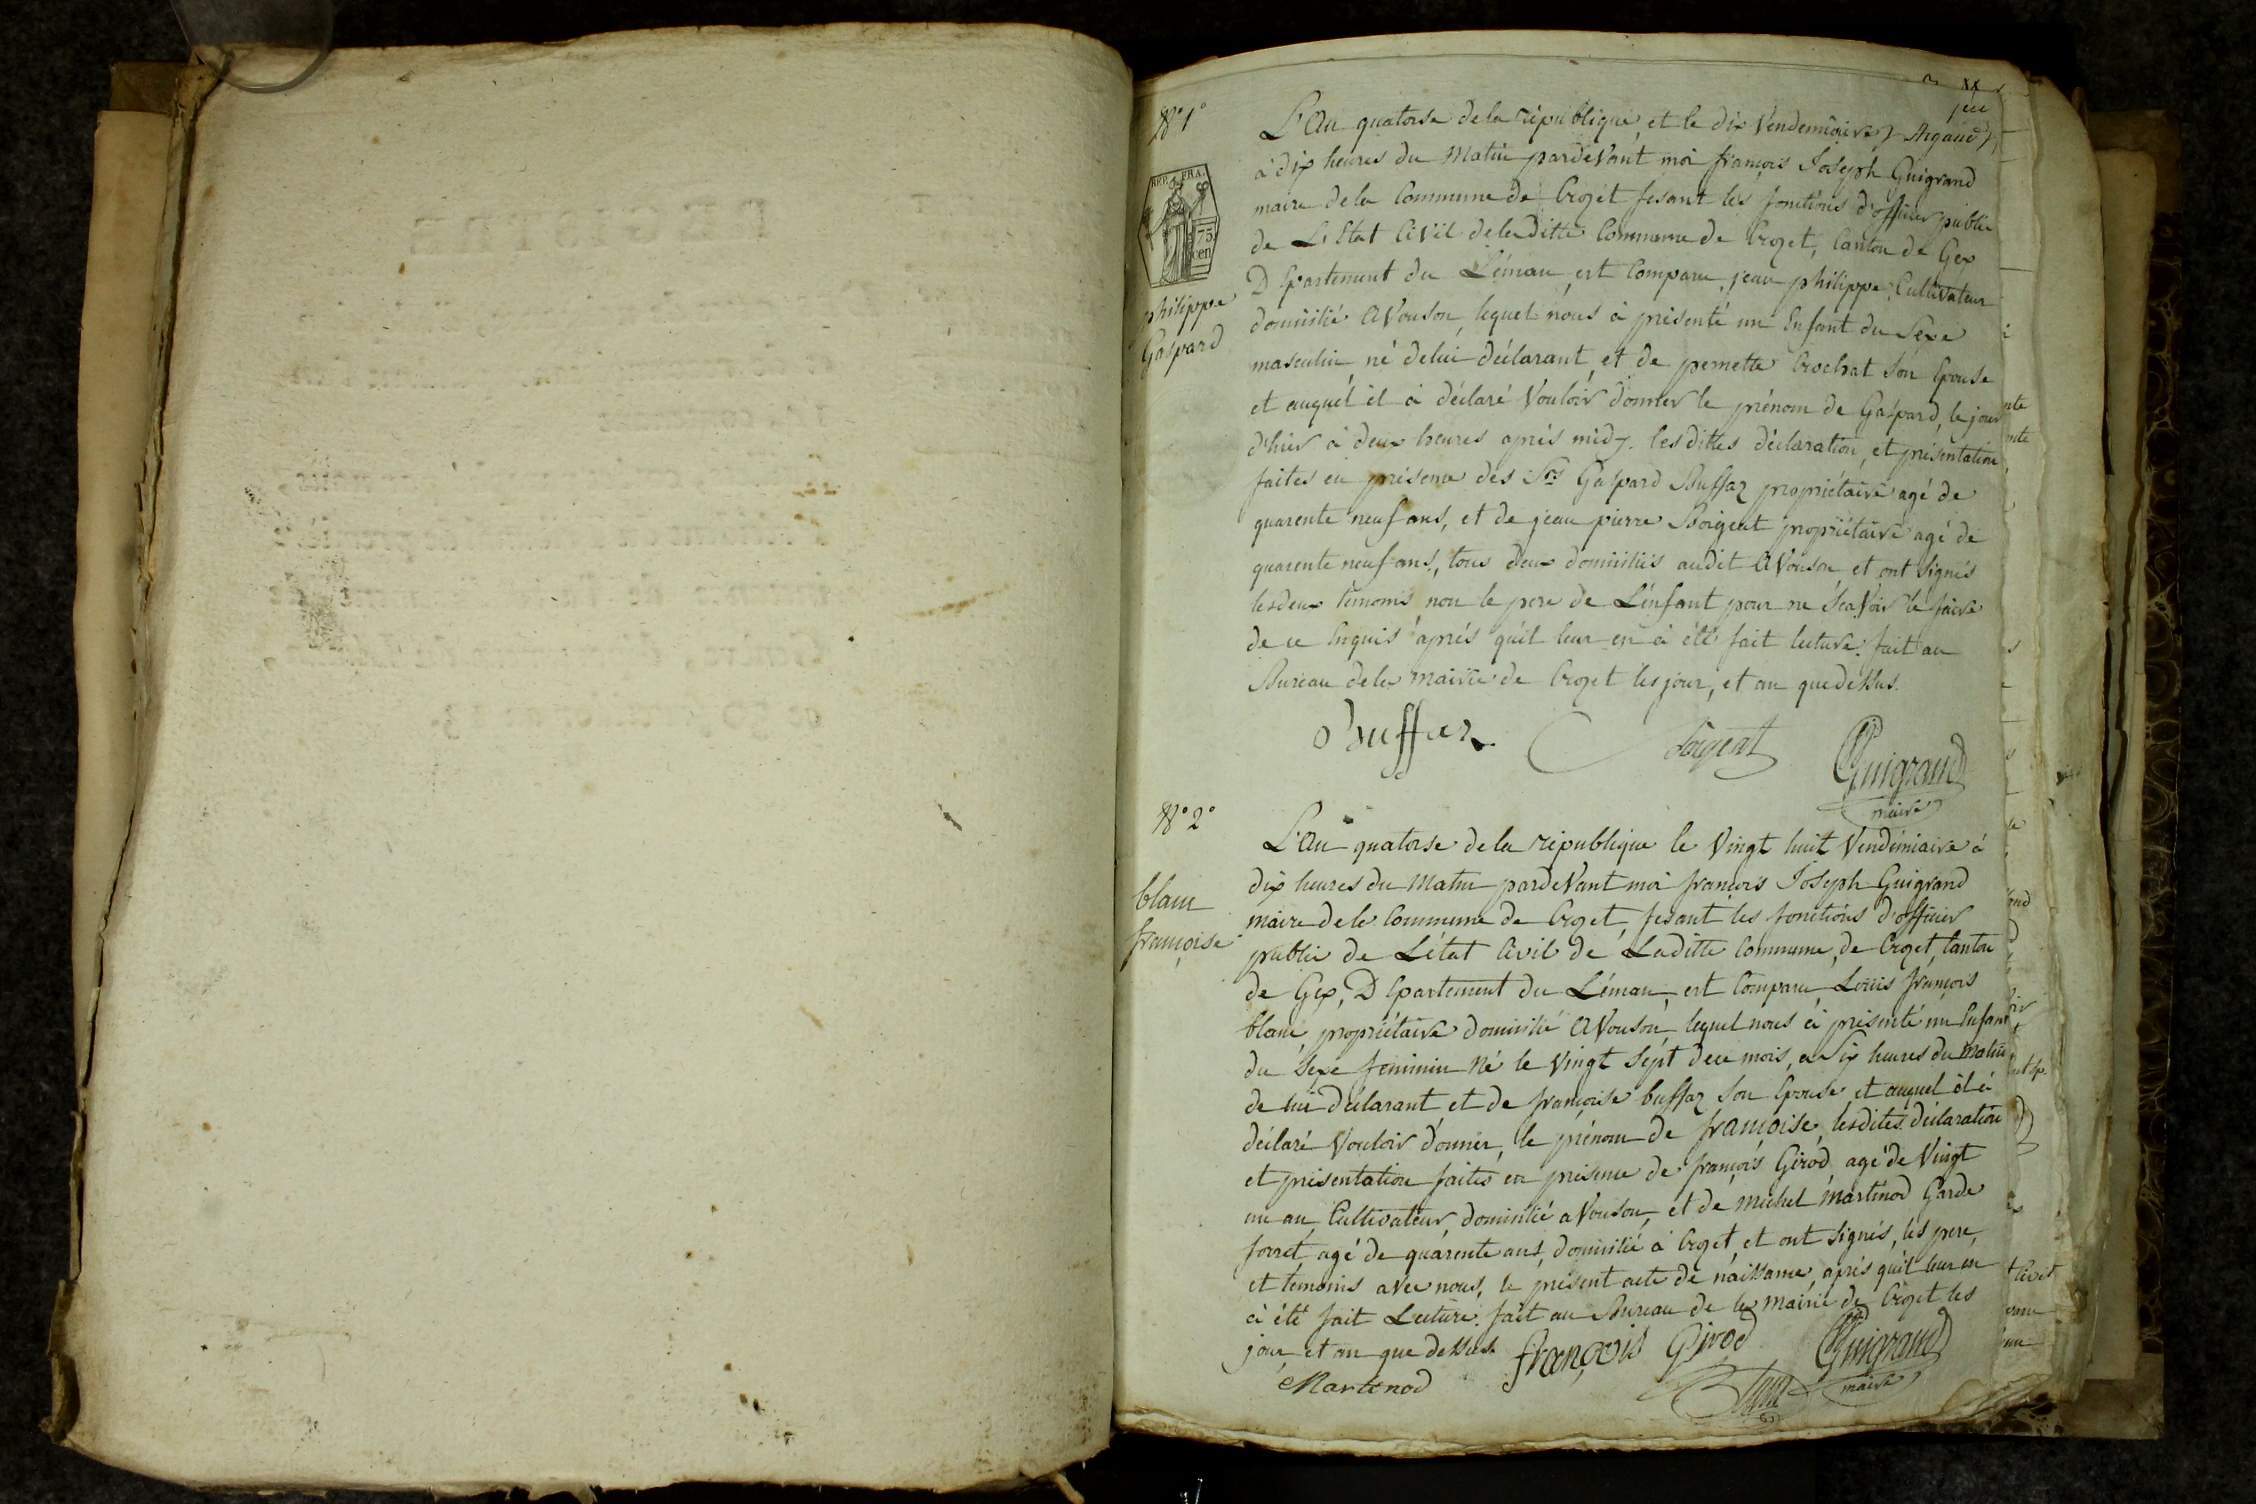 N° 1°
REP. FRA.
75
cen
philippe
Gaspard
L'An quatorse de la république, et le dix Vendemiaire
à dix heures du Matin pardeVant moi françois Joseph Guigrand
maire de la Commune de Crozet fesant les fonctions d'officier public
de L'Etat Civil de la ditte Commune de Crozet, Canton de Gex
DEpartement du Léman, est Comparu, jean philippe, Cultivateur
domicilié AVouson, lequel nous à présenté un Enfant du Sexe
masculin, né de lui déclarant, et de pernette Crochat son Epouse
et auquel il à déclaré Vouloir donner le prénom de Gaspard, le jour
d'hier à deux heures après midy. les dittes déclaration, et présentation
faites en présence des Srs Gaspard Buffaz propriétaire agé de
quarente neuf ans, et de jean pierre Boigeat propriétaire agé de
quarente neuf ans, tous deux domiciliés audit AVouson et ont signés
les deux témoins non le pere de L'enfant pour ne sçaVoir le faire
de ce Enquis après qu'il leur en à été fait lecture. fait au
Bureau de la mairie de Crozet les jour, et an que dessus.
Buffaz Boigeat Guigrand
maire
N° 2°
blanc
françoise
L'An quatorse de la république le Vingt huit Vendémiaire à
dix heures du Matin pardeVant moi françois Joseph Guigrand
maire de la Commune de Crozet, fesant les fonctions d'officier
public de L'état Civil de Laditte Commune, de Crozet, Canton
de Gex, DEpartement du Léman, est Comparu, Louis françois
blanc, propriétaire domicilié AVouson, lequel nous à présenté un Enfant
du sexe feminin Né le Vingt Sept de ce mois, a Six heures du Matin
de lui déclarant et de françoise buffaz son Epouse, et auquel il à
déclaré Vouloir donner, le prénom de françoise, lesdites déclaration
et présentation faites en présence de françois Girod agé de Vingt
un an, Cultivateur, domicilié aVouson, et de michel martinod Garde
forret, agé de quarente ans, domicilié à Crozet, et ont signés, les pere,
et témoins avec nous, le présent acte de naissance, après qu'il leur en
à été fait Lecture. fait au Bureau de la mairie de Crozet les
jour, et an que dessus. françois Girod Guigrand
Martinod Blanc maire